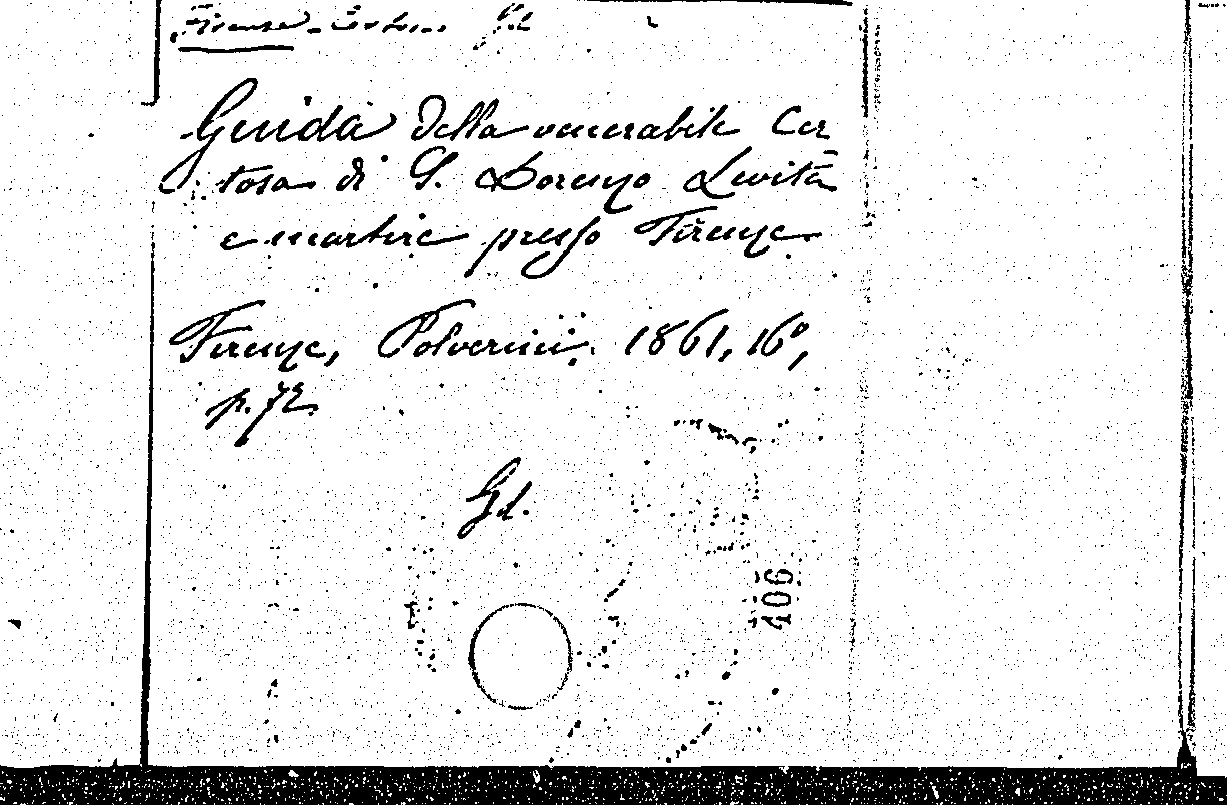 Firenze - Gd
Guida della venerabile Cer
tosa di S. Lorenzo Levita
e martire presso Firenze
Firenze, Polverini, 1861, 16º,
p. 72.
Gd.
406